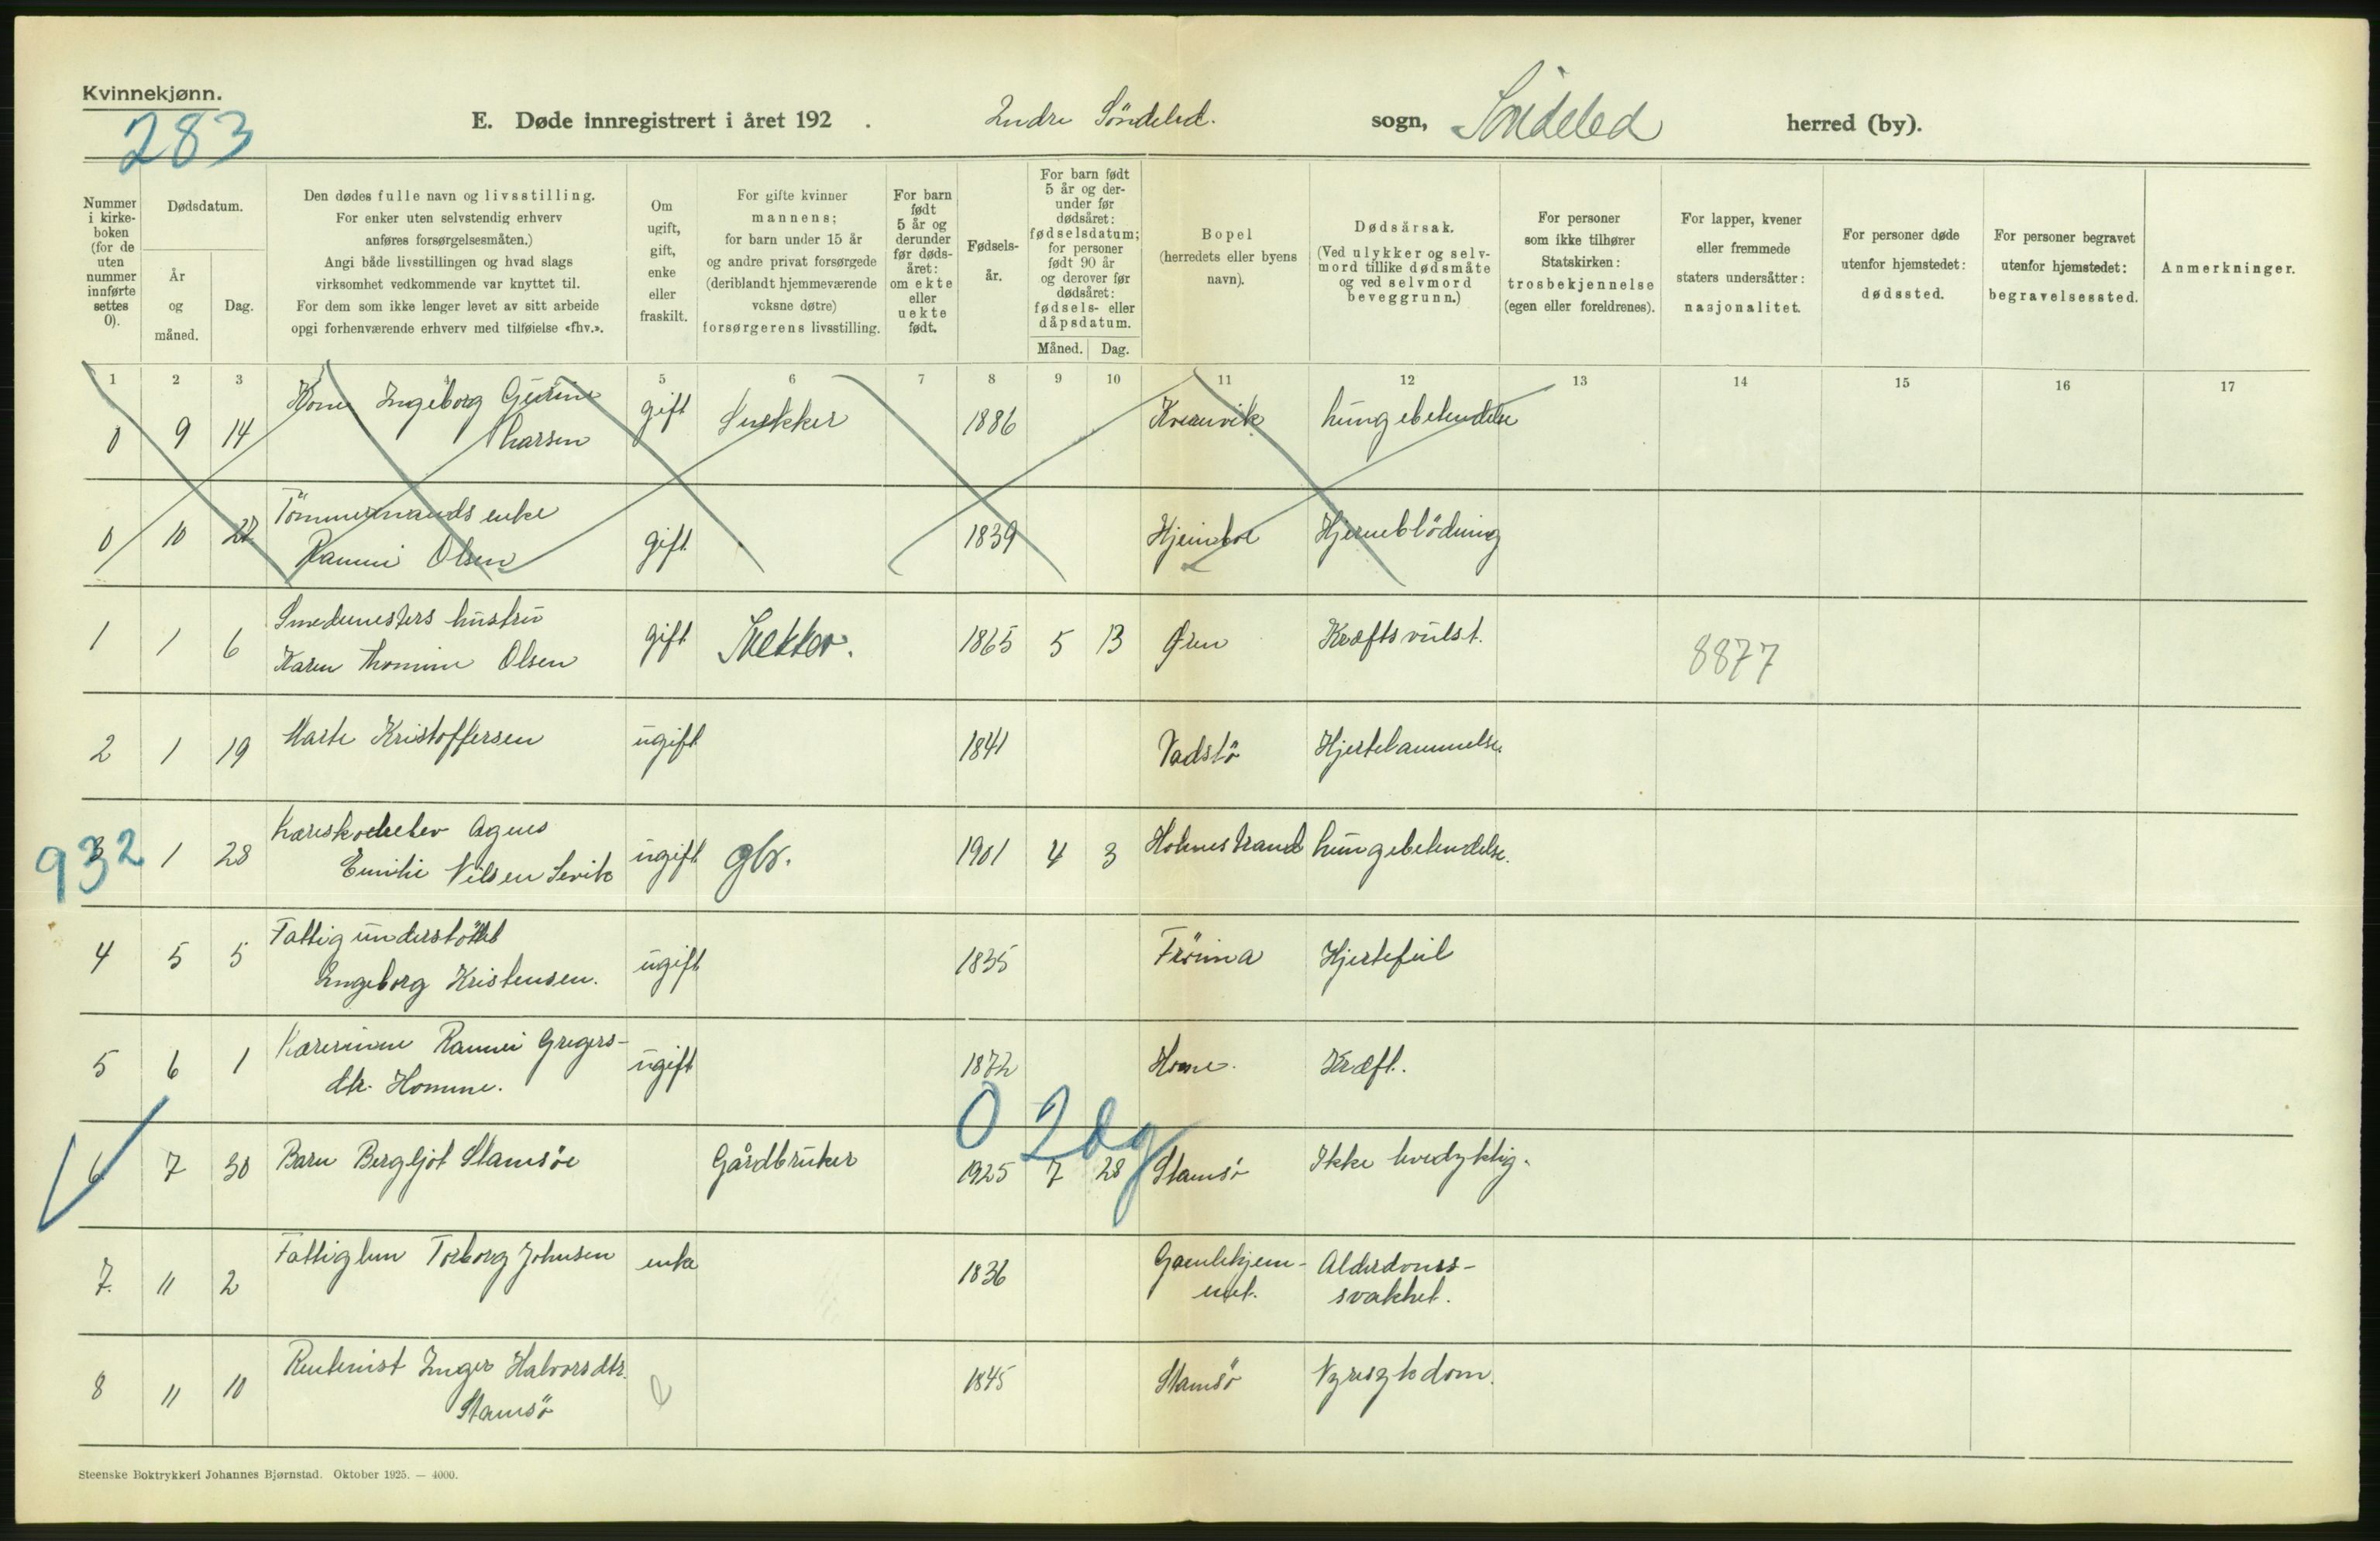 Kvinnekjønn.
283
E. Døde innregistrert i året 192 . Indre Söndeled. sogn, Söndeled herred (by).
Nummer i kirke- boken (for de uten nummer innførte settes 0).
Dødsdatum.
År og måned.
Dag.
Den dødes fulle navn og livsstilling.
For enker uten selvstendig erhverv
anføres forsørgelsesmåten.)
Angi både livsstillingen og hvad slags
virksomhet vedkommende var knyttet til.
For dem som ikke lenger levet av sitt arbeide
opgi forhenværende erhverv med tilføielse «fhv.».
Om ugift, gift, enke eller fraskilt.
For gifte kvinner
mannens;
for barn under 15 år
og andre privat forsørgede
(deriblandt hjemmeværende
voksne døtre)
forsørgerens livsstilling.
For barn født 5 år og derunder før døds- året: om ekte eller uekte født.
Fødsels- år.
For barn født 5 år og der- under før dødsåret: fødselsdatum; for personer født 90 år og derover før dødsåret: fødsels- eller dåpsdatum.
Måned. Dag.
Bopel
(herredets eller byens
navn).
Dødsårsak.
(Ved ulykker og selv-
mord tillike dødsmåte
og ved selvmord
beveggrunn.)
For personer
som ikke tilhører
Statskirken:
trosbekjennelse
(egen eller foreldrenes).
For lapper, kvener
eller fremmede
staters undersåtter:
nasjonalitet.
For personer døde
utenfor hjemstedet:
dødssted.
For personer begravet
utenfor hjemstedet:
begravelsessted.
Anmerkninger.
1 2 3 4 5 6 7 8 9 10 11 12 13 14 15 16 17
0 9 14 Kone Ingeborg Gurine Larsen gift Snekker 1886 Kvernvik Lungebetendelse
0 10 27 Tömmermands enke Ranni Olsen gift 1839 Hjernblödning
1 1 6 Smedmesters hustru Karen Thomine Olsen gift Snekker. 1865 5 13 Øren Kræftsvulst.
8877
2 1 19 Marte Kristoffersen ugift 1841 Vadstö Hjertelammelse.
932
3 1 28 Læreskoleelev Agnes Emilie Nilsen Levik ugift gbr. 1901 4 3 Holmestrand Lungebetendelse.
4 5 5 Fattigunderstöttet Ingeborg Kristensen. ugift 1835 Hjertefeil
5 6 1 Lærerinne Ranni Gregers- dtr. Homme. ugift 1872 Kræft.
0 2 dg
6 7 30 Barn Bergljot Stamsöe Gårdbruker 1925 7 28 Stamsö Ikke levedyktig.
7. 11 2 Fattiglem Torborg Johnsen enke 1836 Gamlehjem- met. Alderdoms- svakhet.
8 11 10 Rentenist Inger Halvorsdtr. Stamsö e 1845 Stamsö Nyresykdom.
Steenske Boktrykkeri Johannes Bjørnstad. Oktober 1925. — 4000.